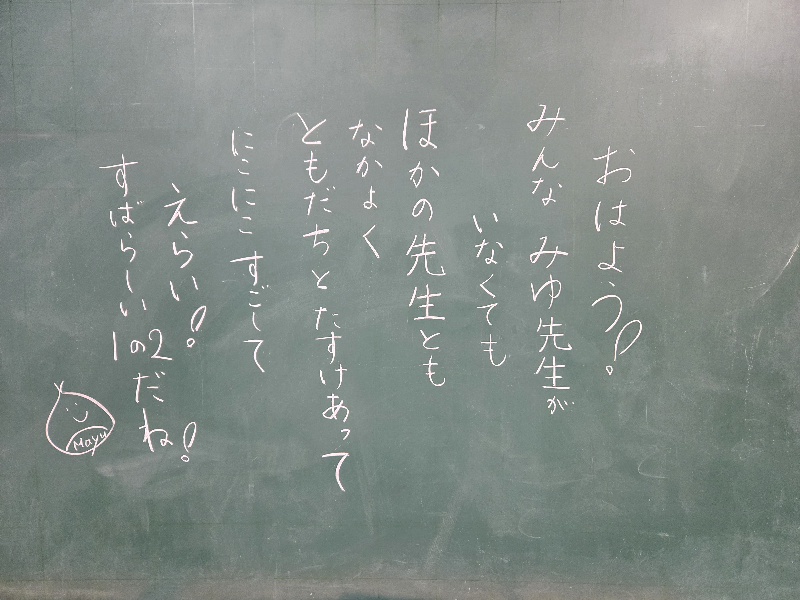 おはよう!
みんな みゆ先生が
いなくても
ほかの先生とも
なかよく
ともだちと たすけあって
にこにこ すごして
えらい!
すばらしい
1の2だね!
Mayu